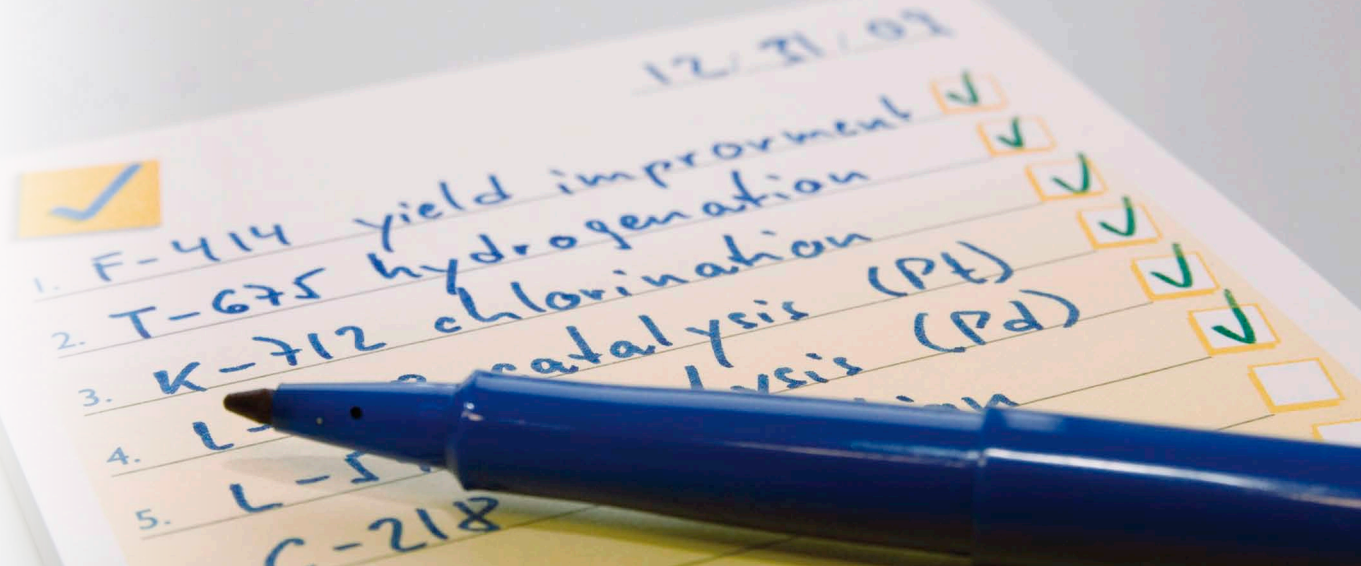 12/31/09
1. F-414 yield improvment
2. T-675 hydrogenation
3. K-712 chlorination
4. L- catalysis (Pt)
5. L-5 (Pd)
C-218